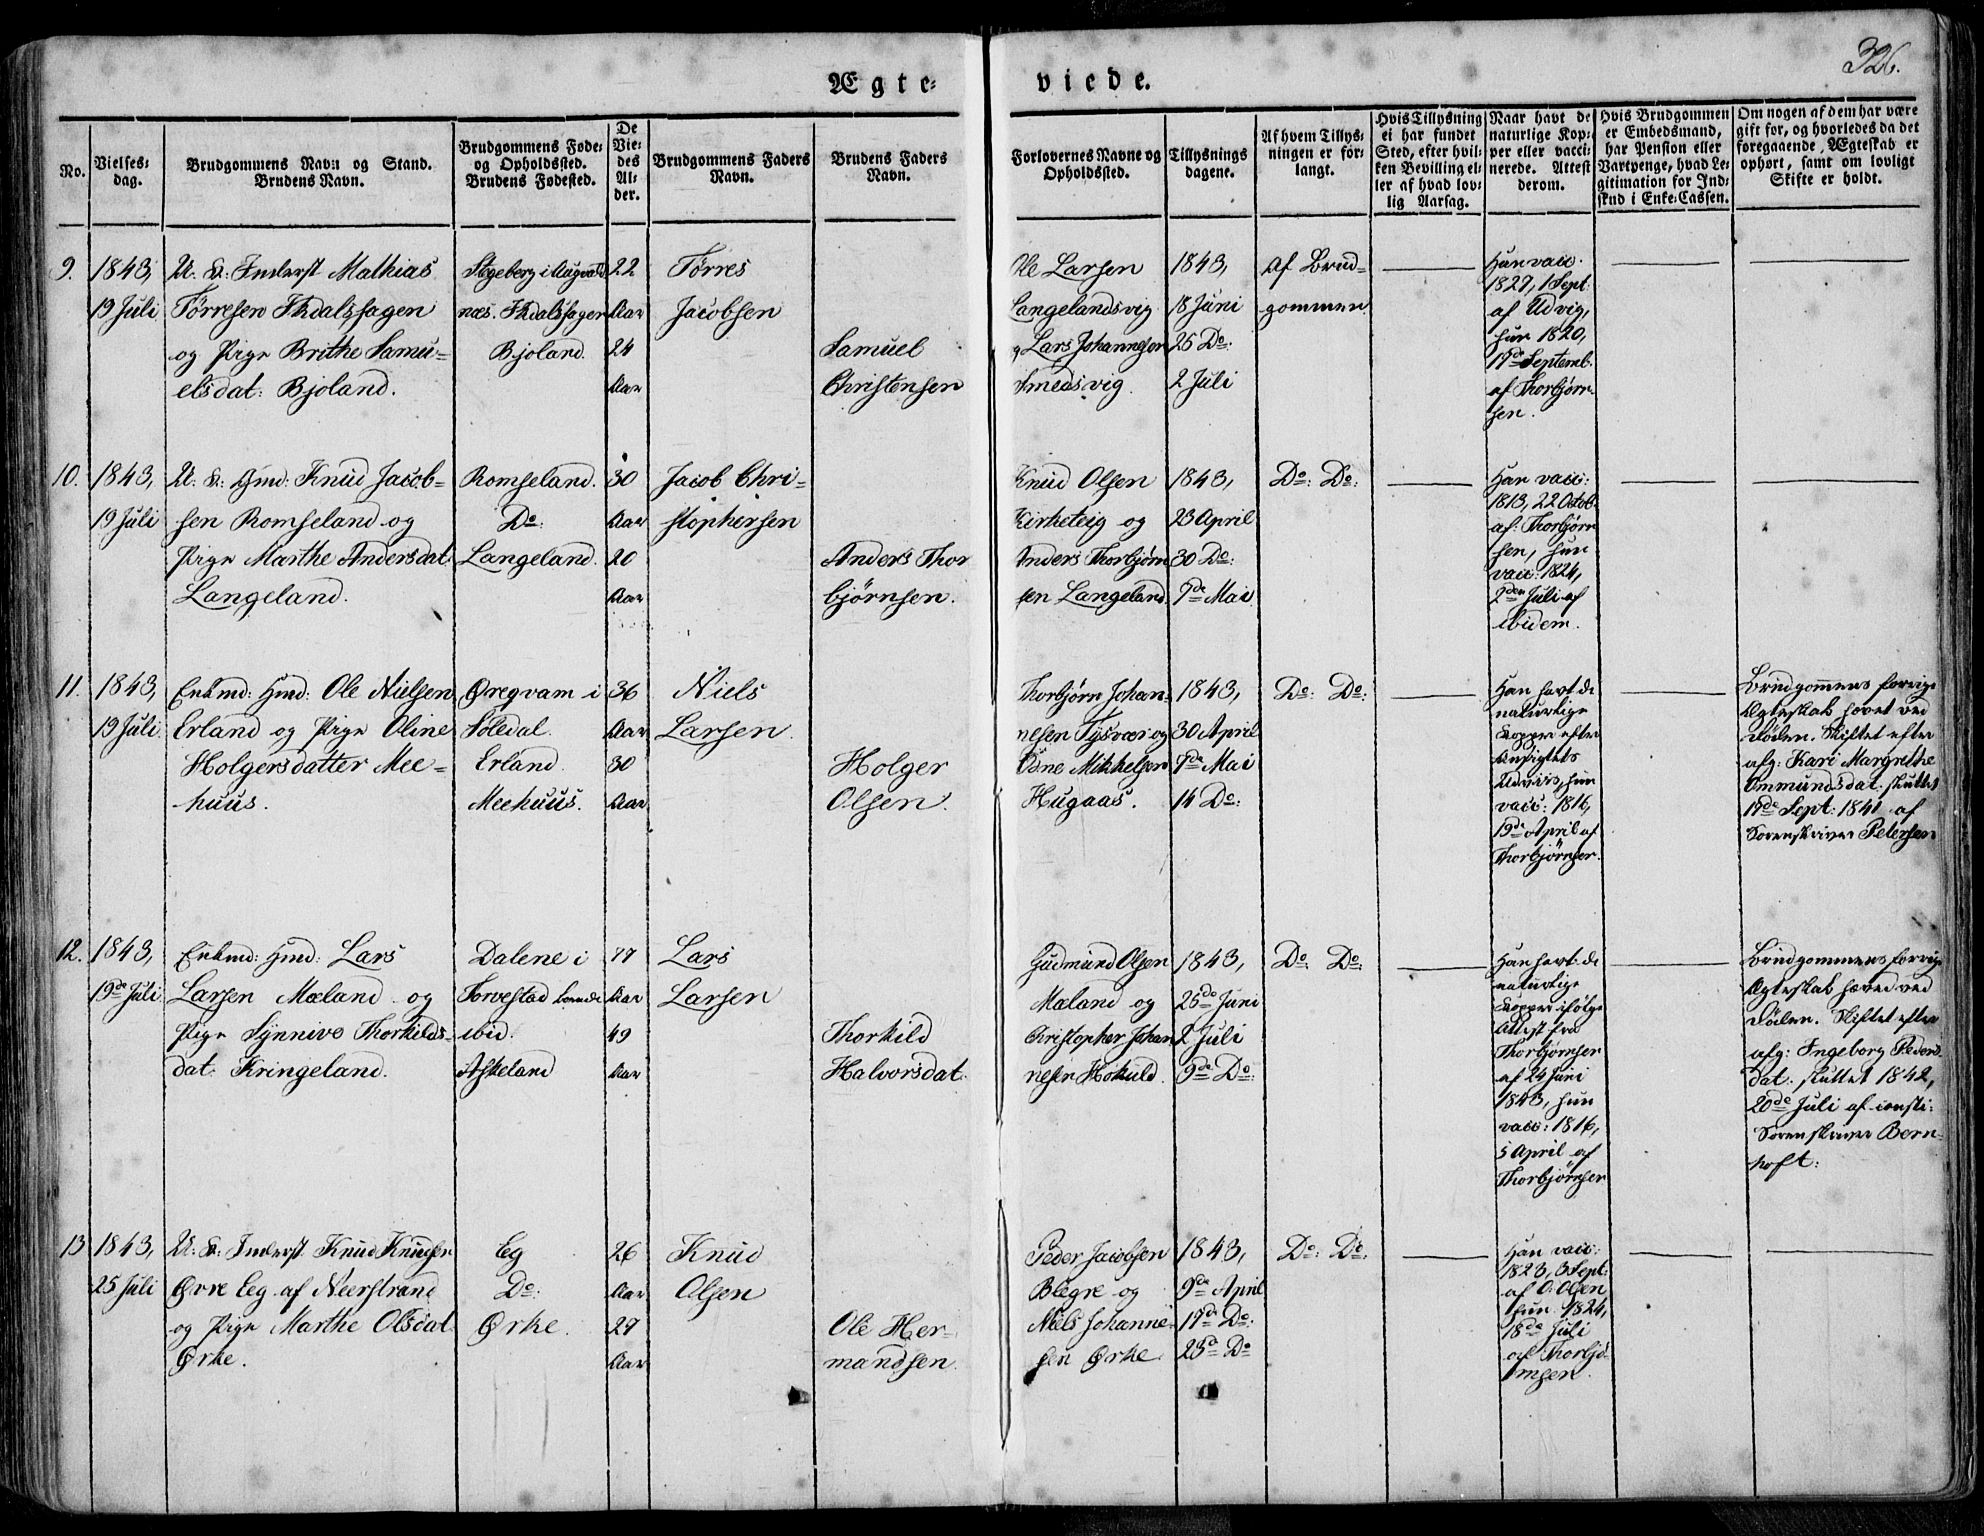 326.
Ægte- viede.
No.
Vielses-
dag.
Brudgommens Navn og Stand.
Brudens Navn.
Brudgommens Føde-
og Opholdssted.
Brudens Fødested.
De
Vie-
des
Al-
der.
Brudgommens Faders
Navn.
Brudens Faders
Navn.
Forlovernes Navne og
Opholdssted.
Tillysnings
dagene.
Af hvem Tillys-
ningen er for-
langt.
Hvis Tillysning
ei har fundet
Sted, efter hvil-
ken Bevilling el-
ler af hvad lov-
lig Aarsag.
Naar havt de
naturlige Kop-
per eller vacci-
nerede. Attest
derom.
Hvis Brudgommen
er Embedsmand,
har Pension eller
Vartpenge, hvad Le-
gitimation for Ind-
skud i Enke-Cassen.
Om nogen af dem har være
gift før, og hvorledes da det
foregaaende Ægteskab er
ophørt, samt om lovligt
Skifte er holdt.
9.
1843,
19 Juli
U. K: Inderst Mathias
Tørresen Fkdalshagen
og Pige Brithe Samu-
elsdat: Bjoland.
Stgeberg i Augvald
næs. Fkdalshagen
Bjoland.
22
Aar
24
Aar
Tørres
Jacobsen
Samuel
Christensen
Ole Larsen
Langelandsvig
og Lars Johannesen
Smedsvig
1843,
18 Juni
25 Do:
2 Juli
Af Brud-
gommen
Han vacc.
1827, 1 Sept
af Udvig,
hun 1820,
19de Septemb.
af Thorbjørn
sen.
10.
1843,
19 Juli
U. K: Gmd: Knud Jacob-
sen Romseland og
Pige Marthe Andersdat
Langeland.
Romseland.
Do:
Langeland.
30
Aar
20
Aar
Jacob Chri-
stophersen
Anders Thor
bjørnsen.
Knud Olsen
Kirketeig og
Anders Thorbjørn
sen Langeland.
1843,
23 April
30 Do:
7de Mai
Do: Do:
Han vacc:
1813, 22 Octob.
af: Thorbjørn
sen, hun
vacc: 1824,
2den Juli af
ibidem.
11.
1843,
19 Juli
Enkmd: Gmd: Ole Nielsen
Erland og Pige Oline
Holgersdatter Mee-
huus.
Øregvam i
Søledal.
Erland.
Meehuus.
36
Aar
30
Aar
Niels
Larsen.
Holger
Olsen.
Thorbjørn Johan-
nesen Tysvær og
Odne Mikkelsen
Hugaas.
1843,
30 April
7de Mai
14 Do:
Do: Do:
Han havt de
naturlige
Kopper efter
Ansigtets
Udviis, hun
vacc: 1816,
19de April af
Thorbjørnsen.
Brudgommens forrige
Ægteskab hævet ved
Døden. Skiftet efter
afg: Kari Margrethe
Ommundsdat: sluttet
19de Sept: 1841 af
Sorenskriver Petersen
12.
1843,
19de Juli
Enkmd: Gmd: Lars
Larsen Mæland og
Pige Synnive Thorkilds-
dat: Kringeland.
Dalene i
Torvestad
ibid.
Askeland
77
Aar
49
Aar
Lars
Larsen
Thorkild
Halvorsdat.
Gudmund Olsen
Mæland og
Christopher Johan
nesen Hokuld.
1843,
25de Juni
2 Juli
9de Do:
Do: Do:
Han havt de
naturlige
Kopper ifølge
Attest fra
Thorbjørnsen
af 24 Juni
1843, hun
vacc: 1816,
5 April af
Thorbjørnsen
Brudgommens forrige
Ægteskab hæved ved
Døden. Skiftet efter
afg: Ingeborg Peders
dat. sluttet 1842,
20de Juli af consti:
Sorenskriver Bern-
hoft:
13
1843,
25 Juli
U. K: Inderst Knud Knudsen
Øvre Eeg af Neerstrand
og Pige Marthe Olsdat
Ørke.
Eg
Do:
Ørke.
26
Aar
27
Aar
Knud
Olsen
Ole Her-
mandsen.
Peder Jacobsen
Blegre og
Niels Johanne-
sen Ørke
1843,
9de April
17de Do:
23de Do
Do: Do:
Han vacc:
1823, 3 Sept:
af O: Olsen
hun 1824,
18de Juli
af Thorbjø-
rnsen.